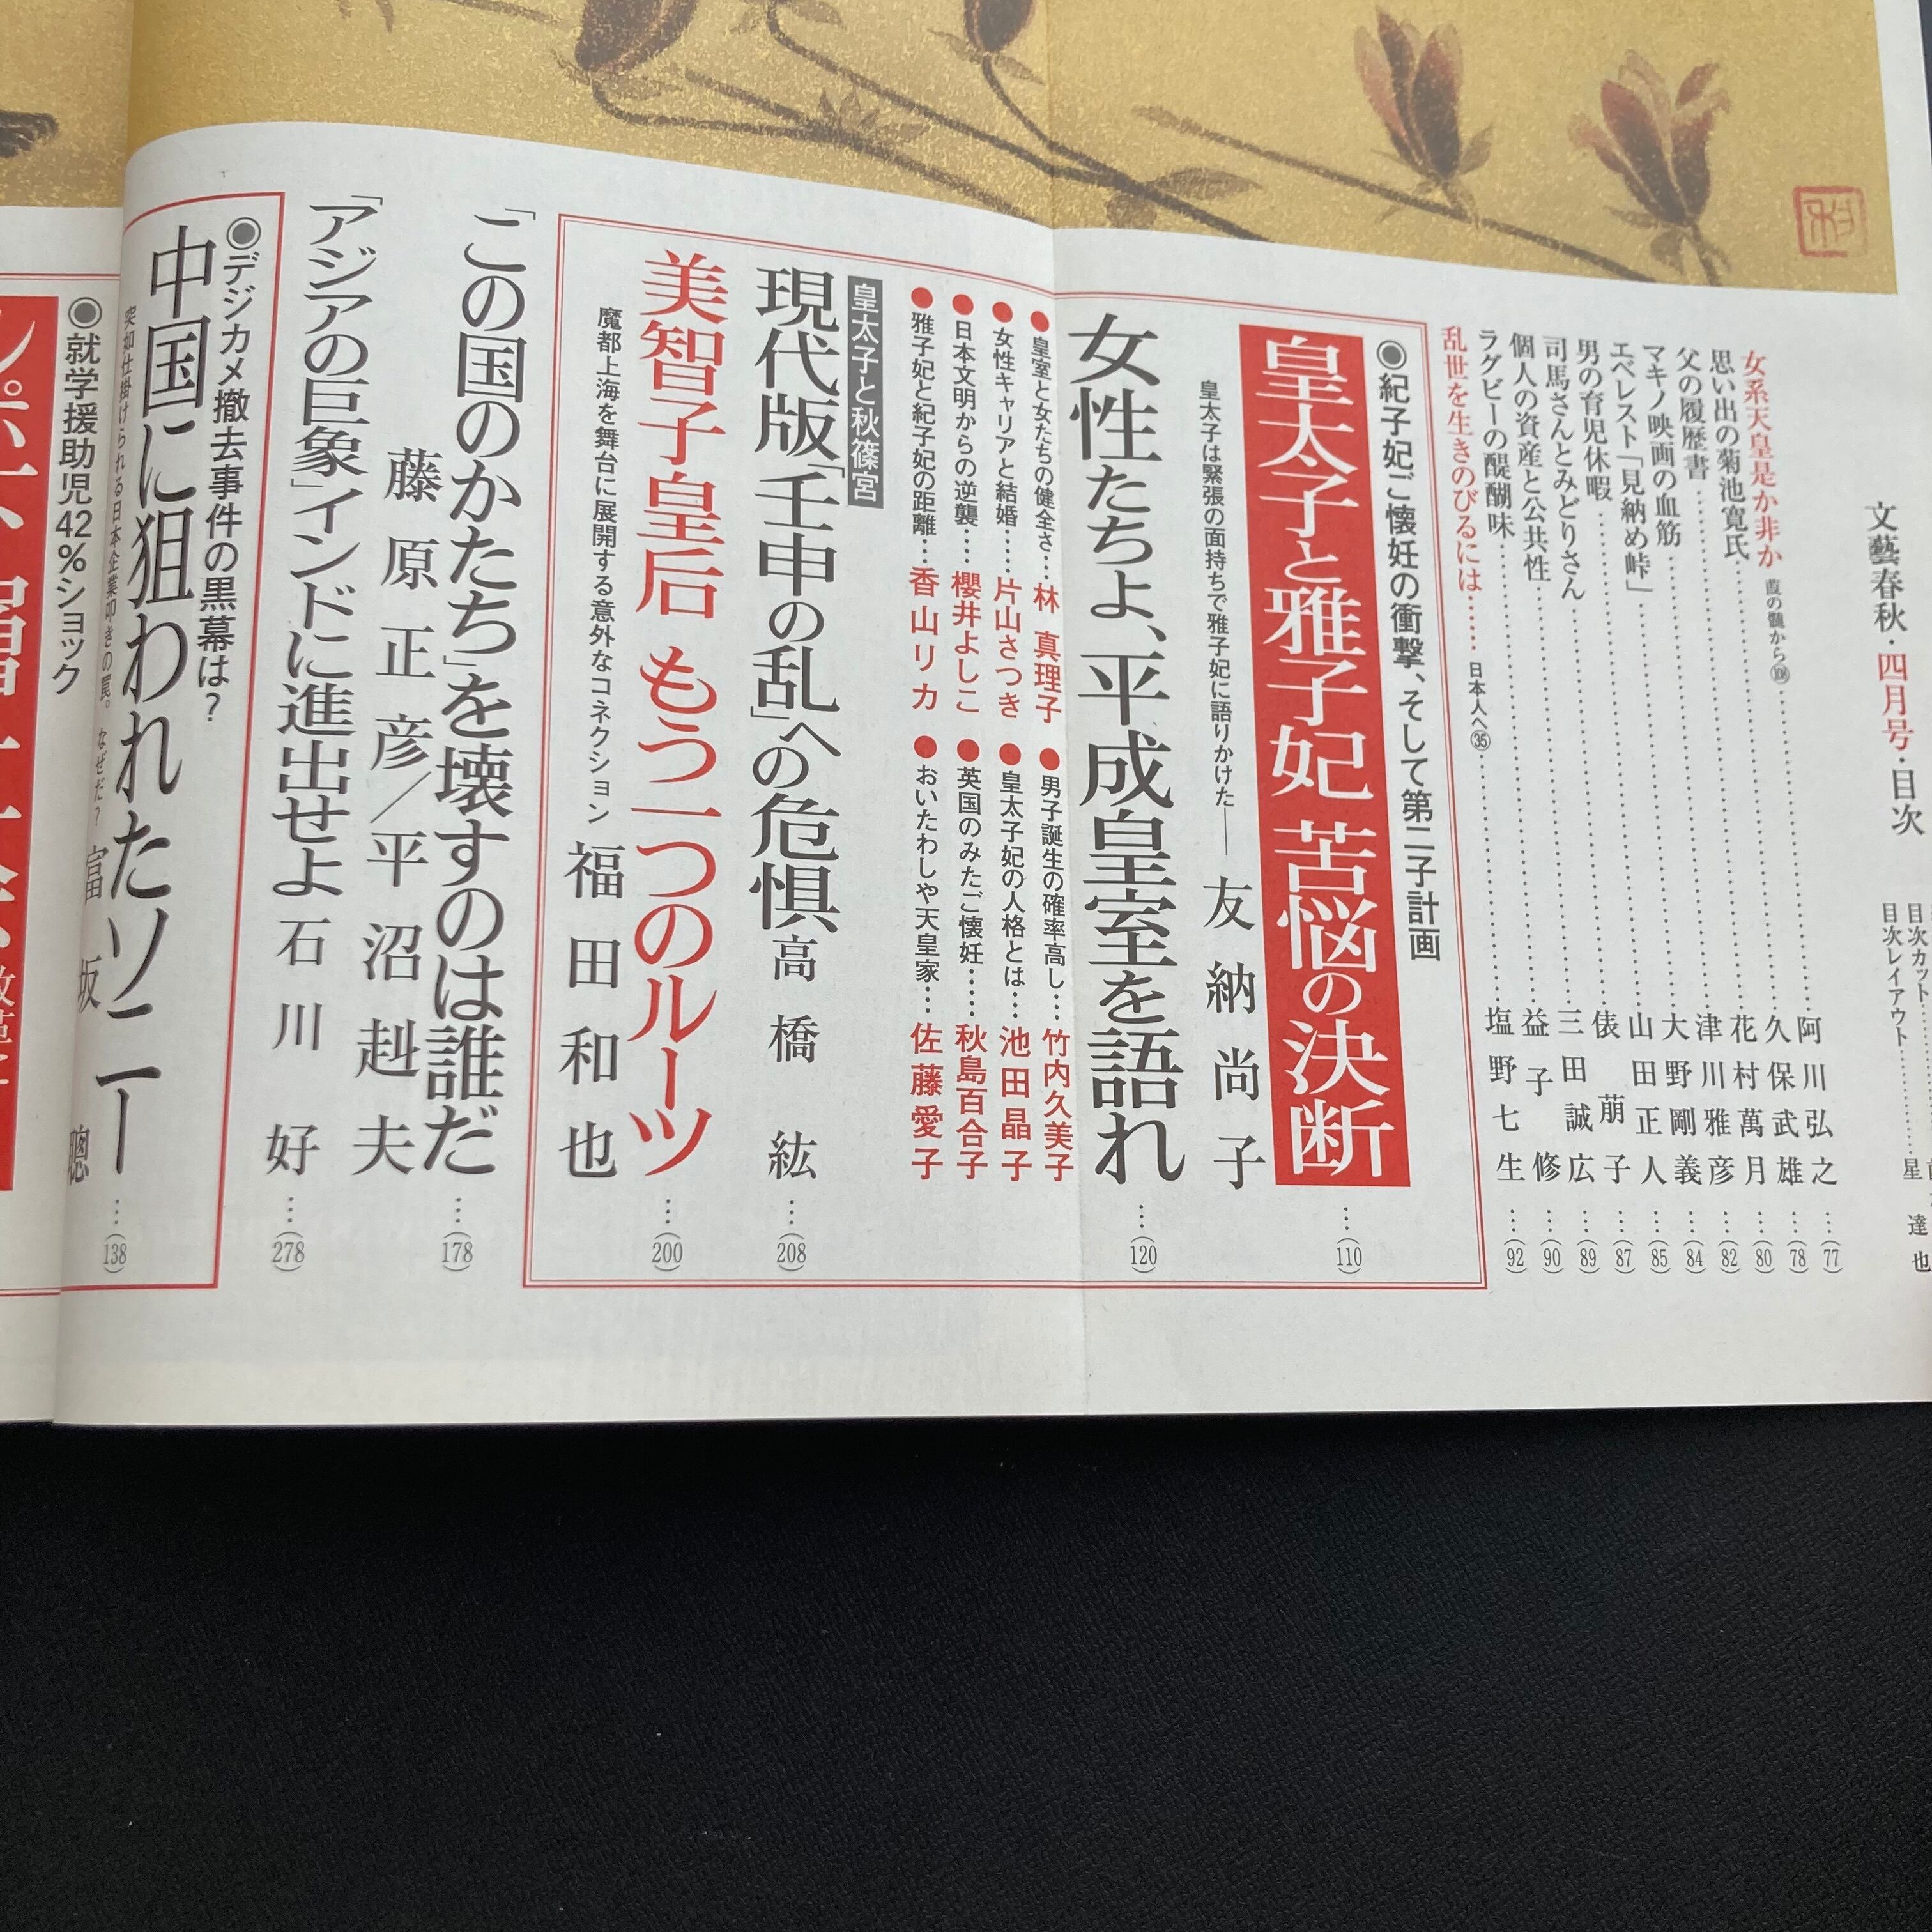 文藝春秋・四月号・目次
目次カット
目次レイアウト
星
達也
女系天皇是か非か 葭の髄から108 阿川弘之 (77)
思い出の菊池寛氏 久保武雄 (78)
父の履歴書 花村萬月 (80)
マキノ映画の血筋 津川雅彦 (82)
エベレスト「見納め峠」 大野剛義 (84)
男の育児休暇 山田正人 (85)
司馬さんとみどりさん 俵萠子 (87)
個人の資産と公共性 三田誠広 (89)
ラグビーの醍醐味 益子修 (90)
乱世を生きのびるには 日本人へ㉟ 塩野七生 (92)
◉紀子妃ご懐妊の衝撃、そして第二子計画
皇太子と雅子妃 苦悩の決断 (110)
皇太子は緊張の面持ちで雅子妃に語りかけた―― 友納尚子
女性たちよ、平成皇室を語れ (120)
●皇室と女たちの健全さ… 林真理子
●男子誕生の確率高し… 竹内久美子
●女性キャリアと結婚…… 片山さつき
●皇太子妃の人格とは… 池田晶子
●日本文明からの逆襲…… 櫻井よしこ
●英国のみたご懐妊…… 秋島百合子
●雅子妃と紀子妃の距離… 香山リカ
●おいたわしや天皇家… 佐藤愛子
皇太子と秋篠宮
現代版「壬申の乱」への危惧 高橋紘 (208)
美智子皇后 もう一つのルーツ (200)
魔都上海を舞台に展開する意外なコネクション 福田和也
「この国のかたち」を壊すのは誰だ (178)
藤原正彦／平沼赳夫
「アジアの巨象」インドに進出せよ 石川好 (278)
◉デジカメ撤去事件の黒幕は？
中国に狙われたソニー (138)
突如仕掛けられる日本企業叩きの罠。なぜだ？ 富坂聰
◉就学援助児42％ショック